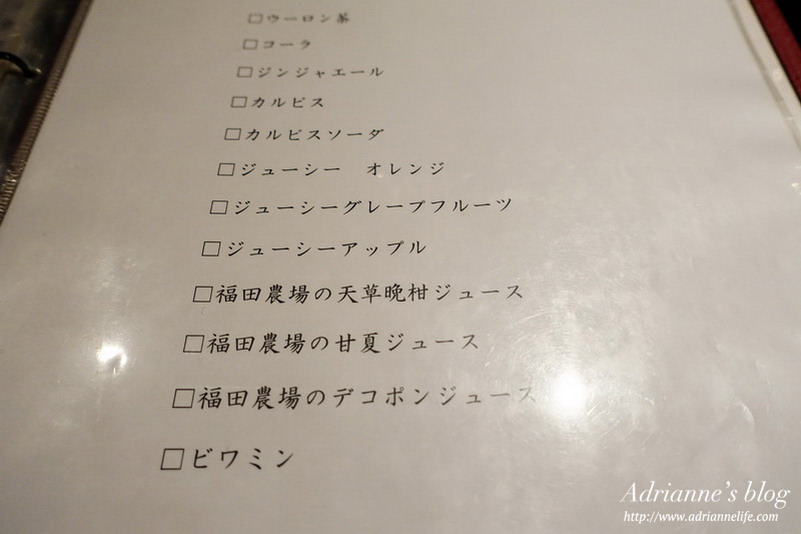 □ウーロン茶
□コーラ
□ジンジャエール
□カルピス
□カルピスソーダ
□ジューシー　オレンジ
□ジューシーグレープフルーツ
□ジューシーアップル
□福田農場の天草晩柑ジュース
□福田農場の甘夏ジュース
□福田農場のデコポンジュース
□ビワミン
Adrianne's blog
http://www.adriannelife.com/